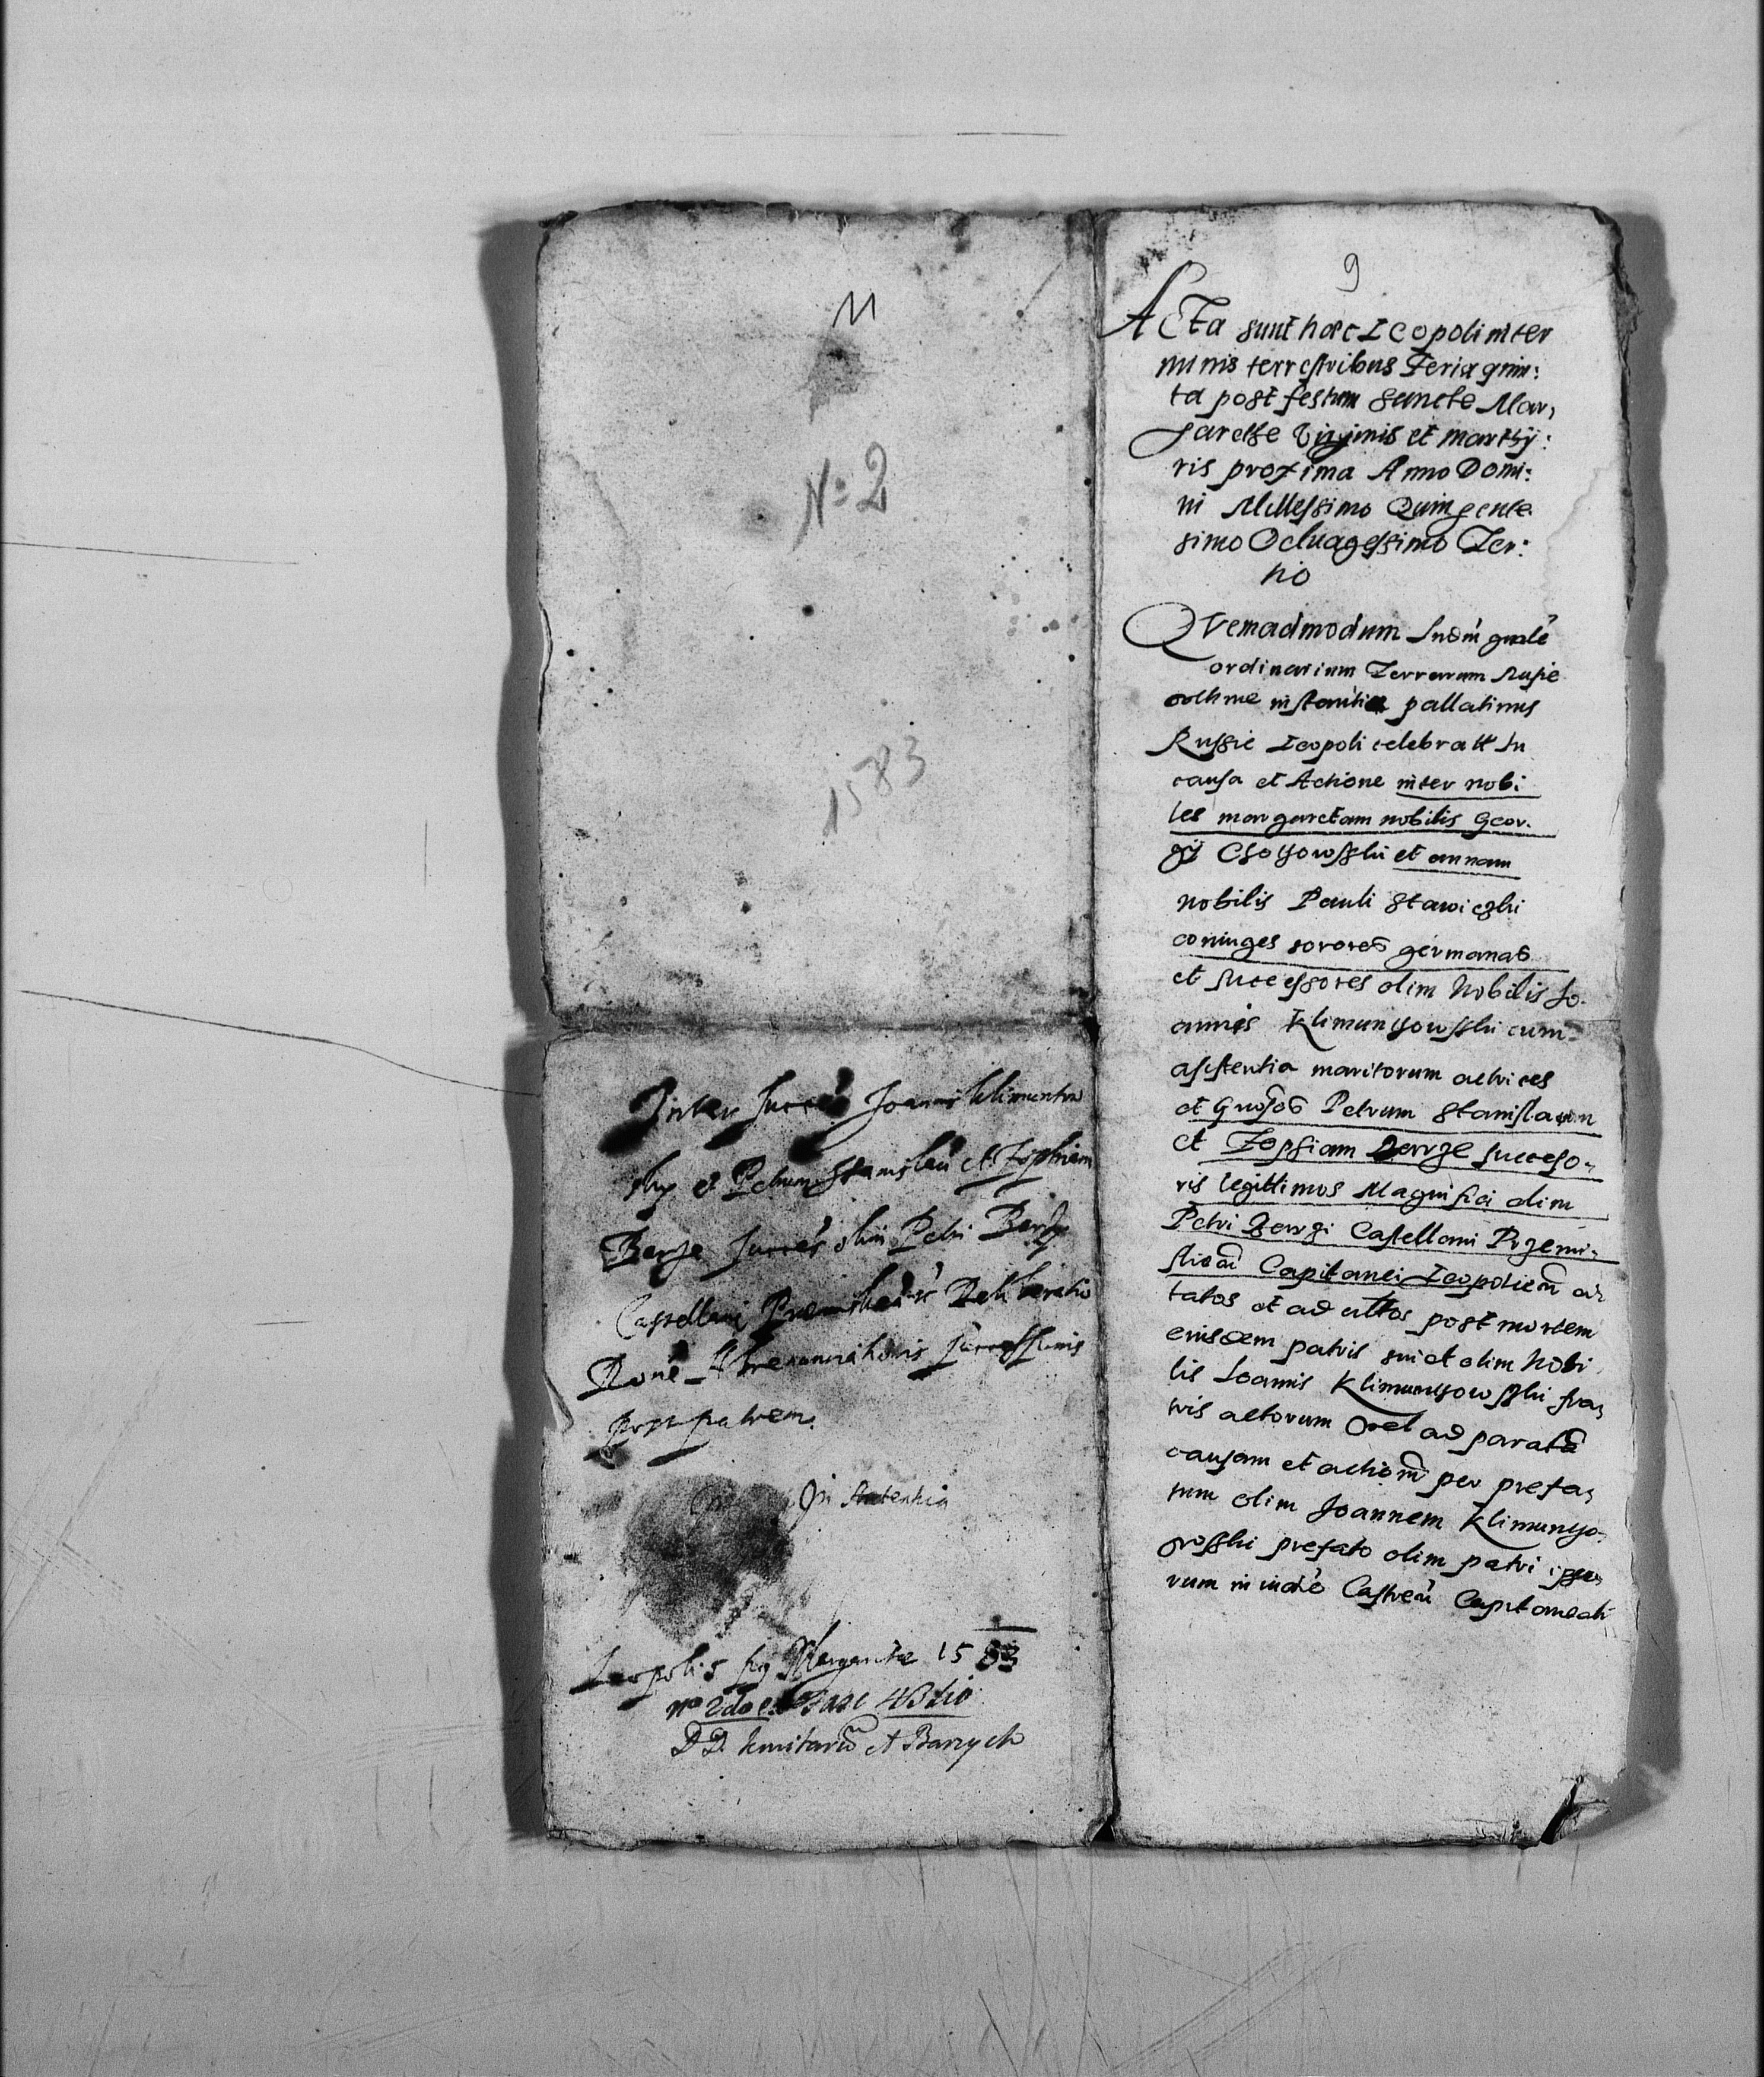 11
No 2
1583
Inter succes Joannis Klimuntow
sky et Petrum Stanislau et Zophiam
Berze succes olim Petri Berzy
Castellani Deliberatio
Rone successionis
post patrem.
In sententia
Leopolis fer Margarithe 1583
no 2do e Fasc 4Btio
D D. Kmitarū et Barzych
9
Acta sunt haec Leopoli in ter
minis terrestribus Feria quin:
ta post festum sancte Mar,
garethe Virginis et marthÿ:
ris proxima Anno Domi:
ni Millessimo Quingente
simo Octuagessimo Ter:
tio
Qvemadmodum Iudm gnale
ordinarium Terrarum Rusie
pallatinus
Russie Leopoli celebratt In
causa et Actione inter nobi:
les margaretam nobilis Geor.
gÿ et annam
nobilis Pauli Stawiczki
coniuges sorores germanas
et successores olim Nobilis Jo.
annis Klimunthowsski cum
assistentia maritorum actrices
et Gnosos Petrum Stanislaum
et Zophiam Berze succeso,
ris legittimos Magnifici olim
Petri Berzi Castellani Przemi,
slien Capitanei Leopolien ci,
tatos et ad actos post mortem
eiusdem patris sui et olim Nobi
lis Joannis Klimunthowsski fra,
tris actorum ad paratā
causam et actionē per prefa,
tum olim Joannem Klimuntho,
wsski prefato olim patri ipso,
rum in iudo Castren Capitaneali